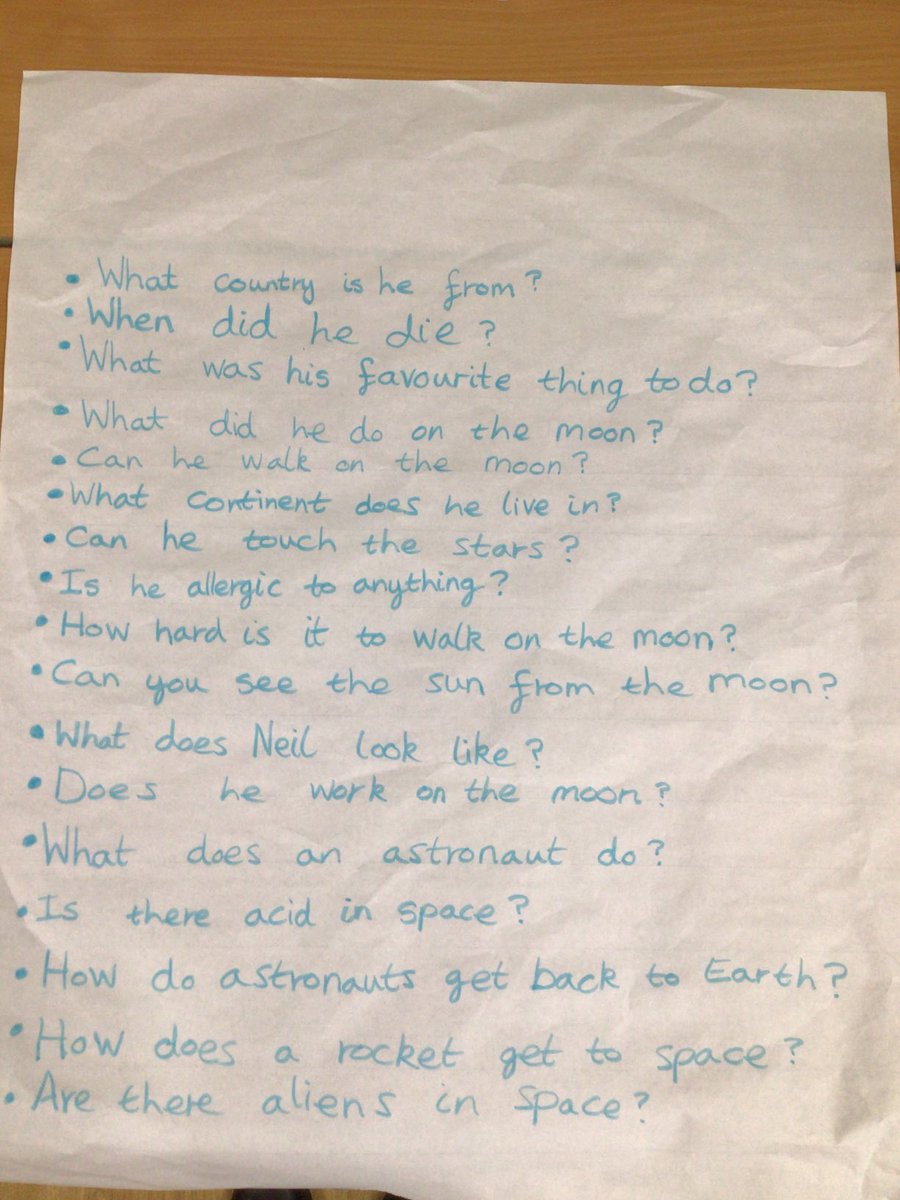 • What country is he from?
• When did he die?
• What was his favourite thing to do?
• What did he do on the moon?
• Can he walk on the moon?
• What continent does he live in?
• Can he touch the stars?
• Is he allergic to anything?
• How hard is it to walk on the moon?
• Can you see the sun from the moon?
• What does Neil look like?
• Does he work on the moon?
• What does an astronaut do?
• Is there acid in space?
• How do astronauts get back to Earth?
• How does a rocket get to space?
• Are there aliens in space?